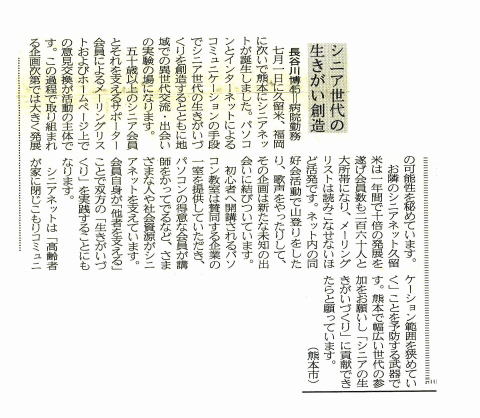 シニア世代の
生きがい創造
長谷川博
41
＝病院勤務
七月一日に久留米、福岡
に次いで熊本にシニアネッ
トが誕生しました。パソコ
ンとインターネットによる
コミュニケーションの手段
でシニア世代の生きがいづ
くりを創造するとともに地
域での異世代交流・出会い
の実験の場になります。
五十歳以上のシニア会員
とそれを支えるサポーター
会員によるメーリングリス
トおよびホームページ上で
の意見交換が活動の主体で
す。この過程で取り組まれ
る企画次第では大きく発展
の可能性を秘めています。
お隣のシニアネット久留
米は一年間で十倍の発展を
遂げ会員数も二百六十人と
大所帯になり、メーリング
リストは読みこなせないほ
ど活発です。ネット内の同
好会活動で山登りをした
り、歌声をやったりして、
その企画は新たな未知の出
会いに結びついています。
初心者へ開講されるパソ
コン教室は賛同する企業の
一室を提供していただき、
パソコンの得意な会員が講
師をかってでるなど、さま
ざまな人や社会資源がシニ
アネットを支えています。
会員自身が「他者を支える」
ことで双方の「生きがいづ
くり」を実践することにも
なります。
シニアネットは「高齢者
が家に閉じこもりコミュニ
ケーション範囲を狭めてい
く」ことを予防する武器で
す。熊本で幅広い世代の参
加をお願いし「シニアの生
きがいづくり」に貢献でき
たらと願っています。
（熊本市）